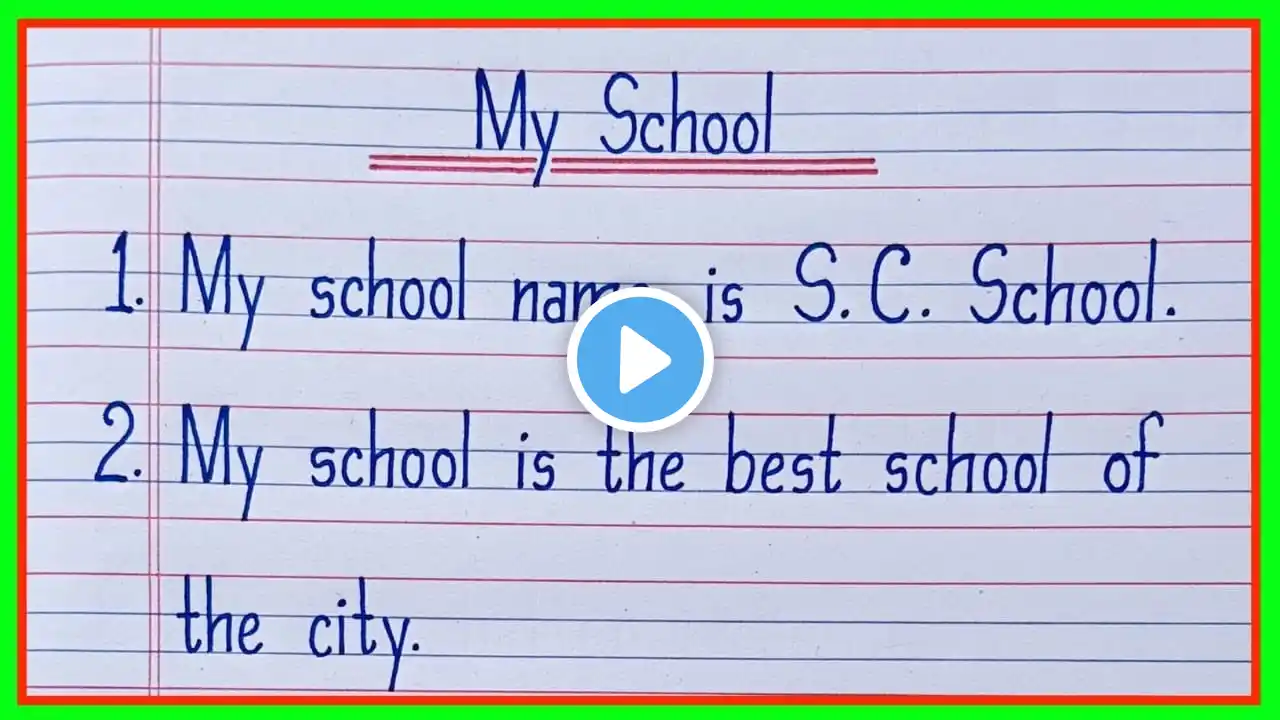 My School
1. My school name is S.C. School.
2. My school is the best school of
the city.